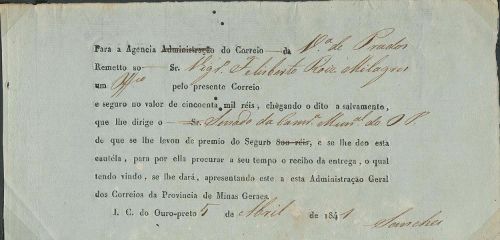 Para a Agencia Administração do Correio da V.ª de Prados
Remetto ao Sr. Vig.º Feliberto Roiz Milagres
um Off.co pelo presente Correio
e seguro no valor de cincoenta mil réis, chegando o dito a salvamento,
que lhe dirige o Sr. Senado da Cam.ª Mun.al de O P
de que se lhe levou de premio do Seguro Sao réis, e se lhe deo esta
cautéla, para por ella procurar a seu tempo o recibo da entrega, o qual
tendo vindo, se lhe dará, apresentando este a esta Administração Geral
dos Correios da Provincia de Minas Geraes.
I. C. do Ouro-preto 5 de Abril de 1841
Sanches